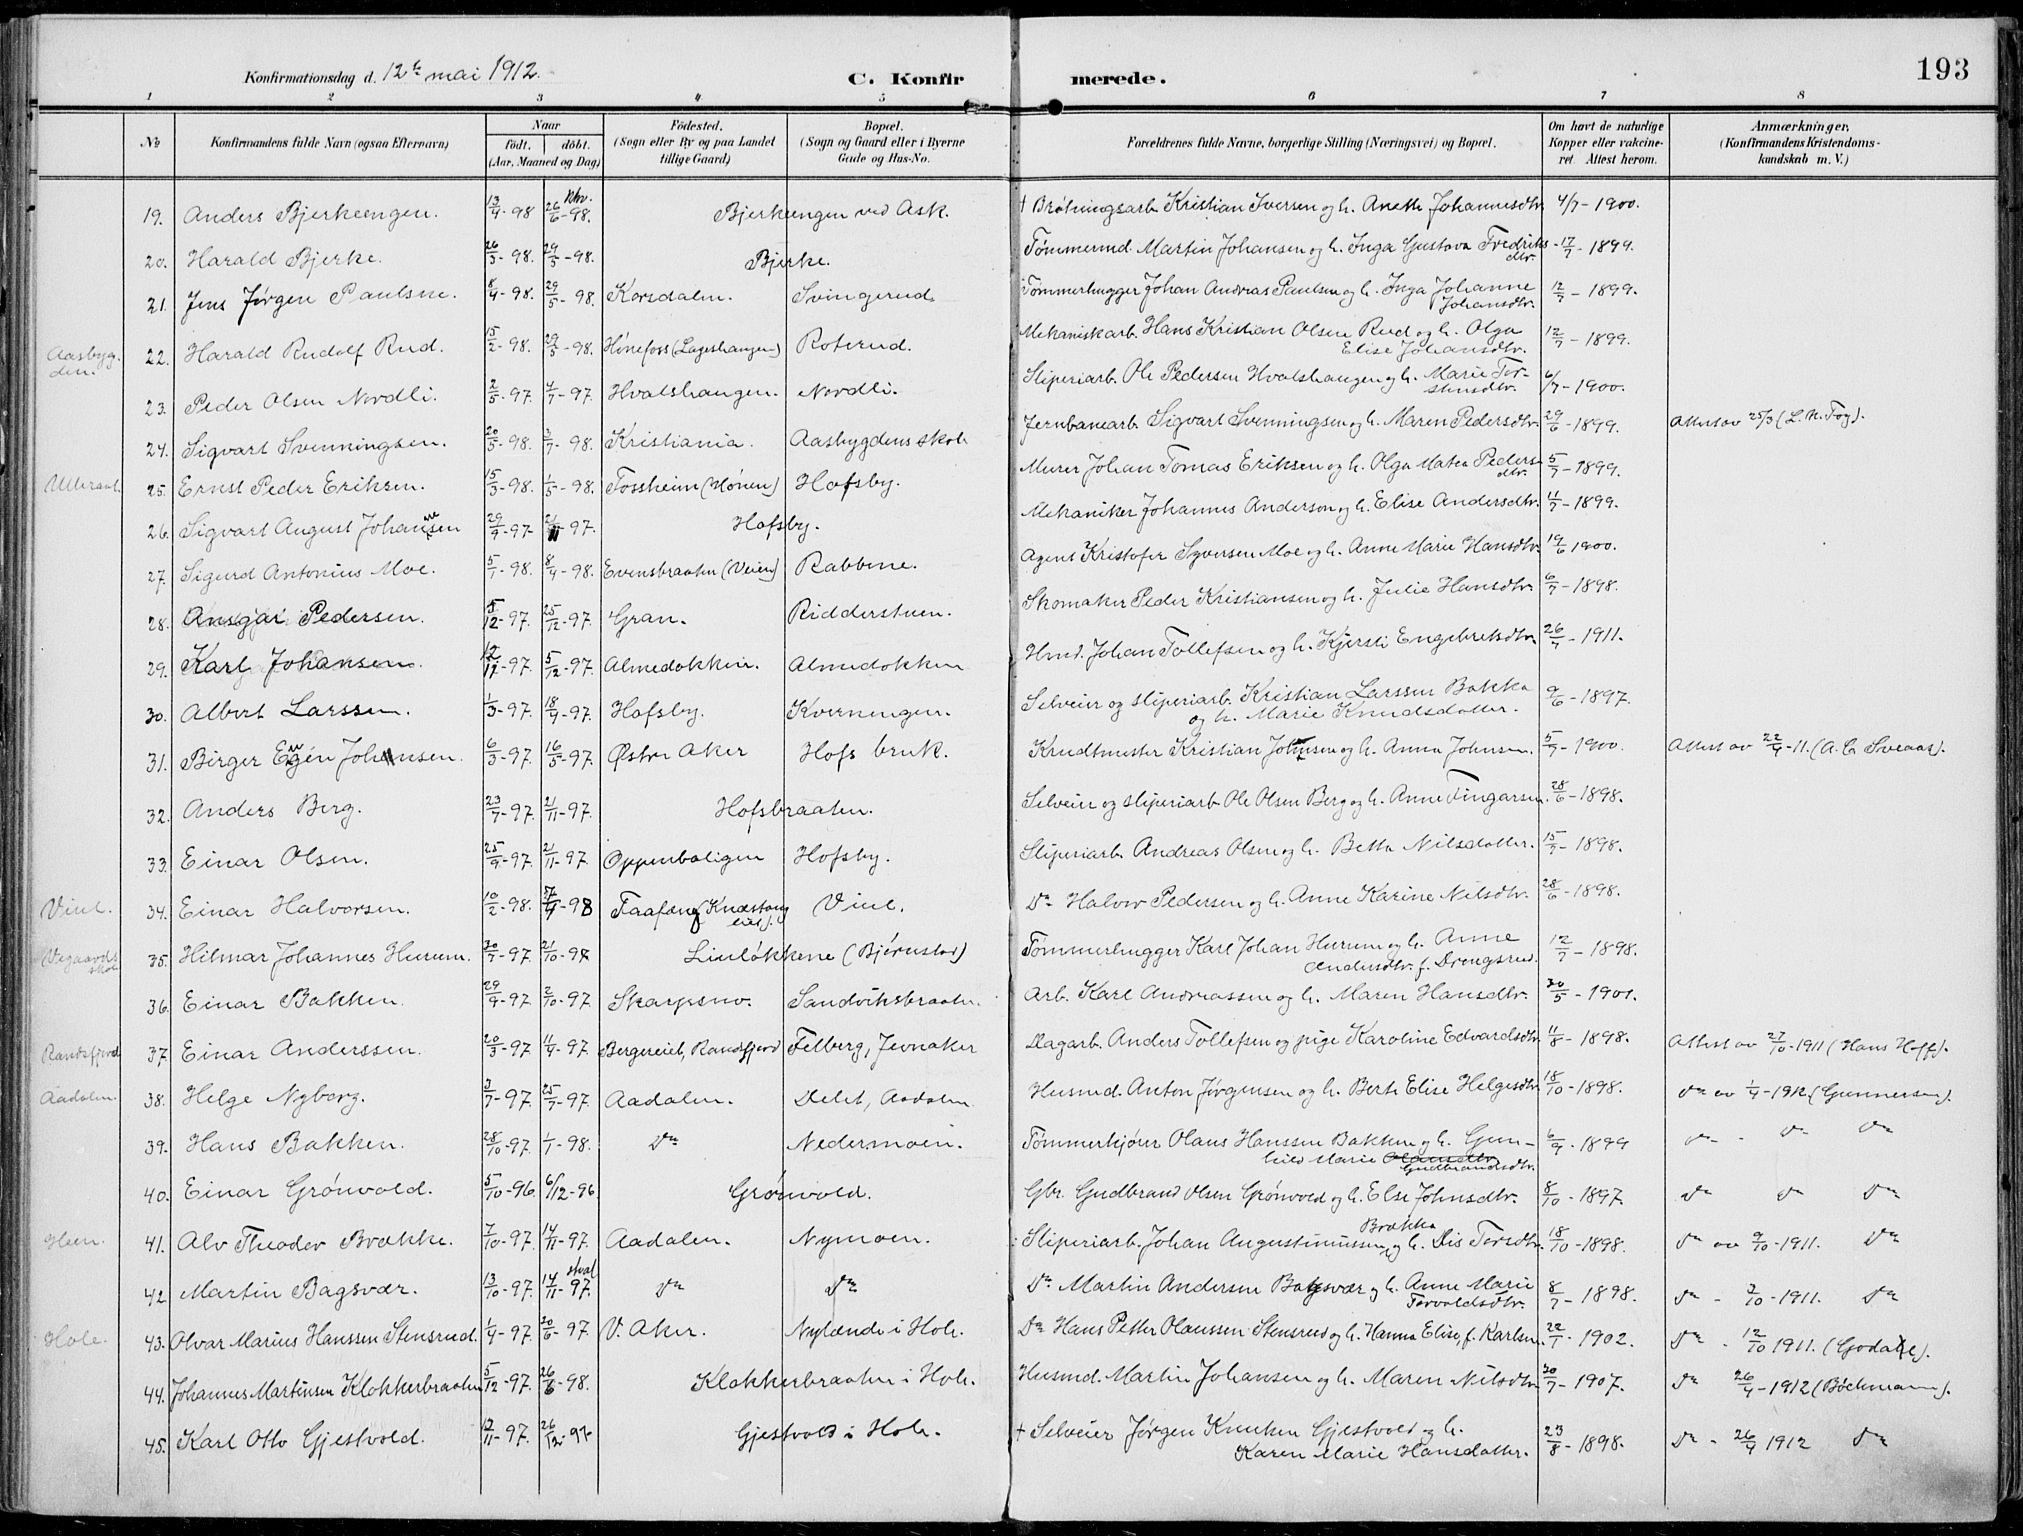 Konfirmationsdag d. 12te mai 1912.
C. Konfirmerede.
193
1 2 3 4 5 6 7 8
№
Konfirmandens fulde Navn (ogsaa Efternavn)
Naar
født. døbt.
(Aar, Maaned og Dag)
Fødested.
(Sogn eller By og paa Landet
tillige Gaard)
Bopæl.
(Sogn og Gaard eller i Byerne
Gade og Hus-No.
Forældrenes fulde Navne, borgerlige Stilling (Næringsvei) og Bopæl.
Om havt de naturlige
Kopper eller vakcine-
ret. Attest herom.
Anmærkninger.
(Konfirmandens Kristendoms-
kundskab m. V.)
19. Anders Bjerkeengen. 13/4-98 26/6-98. Bjerkeengen ved Ask. † Brøtningsarb. Kristian Iversen og h. Anette Johannesdtr. 4/7-1900.
20. Harald Bjerke. 26/3-98. 29/5-98. Bjerke. Tømmermd. Martin Johansen og h. Inga Gustava Fredriks-dtr. 17/7-1899.
21. Jens Jørgen Paulsen. 8/4-98. 29/5-98. Korsdalen. Svingerud. Tømmerhugger Johan Andreas Paulsen og h. Inga Johanne Johansdtr. 12/7-1899.
Aasbygden. 22. Harald Rudolf Rud. 15/2-98. 29/5-98. Hønefoss (Lageshaugen) Roterud. Mekaniskarb. Hans Kristian Olsen Rud og h. Olga Elise Johansdtr. 12/7-1899.
23. Peder Olsen Nordli. 2/5-97. 4/7-97. Hvalshaugen. Nordli. Sliperiarb. Ole Pedersen Hvalshaugen og h. Marie Torstensdtr. 6/7-1900.
24. Sigvart Svenningsen. 20/5-98. 3/7-98. Kristiania. Aasbygdens skole Jernbanearb. Sigvart Svenningsen og h. Maren Pedersdtr. 29/6-1899. Attest av 25/3 (L. N. Tog).
Ulleraal. 25. Ernst Peder Eriksen. 15/3-98. 1/5-98. Fossheim (Hønen) Hofsby. Murer Johan Tomas Eriksen og h. Olga Matea Peders-dtr. 5/7-1899.
26. Sigvart August Johansen 29/9-97. 21/11-97. Hofsby. Mekaniker Johannes Anderson og h. Elise Andersdtr. 11/7-1899.
27. Sigurd Antonius Moe. 5/1-98. 8/4-98. Evensbraaten (Veien) Rabbene. Agent Kristofer Syversen Moe og h. Anne Marie Hansdtr. 19/6 1900.
28. Ansgar Pedersen. 5/12-97. 25/12-97. Gran. Ridderstuen. Skomaker Peder Kristiansen og h. Julie Hansdtr. 6/7-1898.
29. Karl Johansen. -97. 5/12-97. Almedokken. Almedokken Hmd. Johan Tollefsen og h. Kjersti Engebretsdtr. 26/4-1911.
30. Albert Larssen. 1/3-97. 18/4-97. Hofsby. Kverningen. Selveier og sliperiarb. Kristian Larssen Bakka og h. Marie Knudsdatter. 9/6-1897.
31. Birger Egén Johansen. 6/3-97. 16/5-97. Østre Aker Hofs bruk. Krudtmester Kristian Johnsen og h. Anna Johnsen. 5/7-1900. Attest av 22/4-11. (A. C. Sveaas).
32. Anders Berg. 23/7-97. 21/11-97. Hofsbraaten. Selveier og sliperiarb. Ole Olsen Berg og h. Anne Fingarsen. 28/6-1898.
33. Einar Olsen. 25/9-97. 21/11-97. Oppenboligen Hofsby. Sliperiarb. Andreas Olsen og h. Betta Nilsdatter. 15/7-1898.
Viul. 34. Einar Halvorsen. 10/2-98. -98 Faafæng (Knæstangeiet). Viul. Do Halvor Pedersen og h. Anne Karine Nilsdtr. 28/6-1898.
Vegaards skole 35. Hilmar Johannes Hurum. 30/7-97. 21/10-97. Linløkkene (Bjørnstad) Tømmerhugger Karl Johan Hurum og h. Anne Andersdtr. f. Drengsrud. 12/7-1898.
36. Einar Bakken. 29/9-97 2/10-97. Skarpsno. Sandviksbraaten. Arb. Karl Andreassen og h. Maren Hansdtr. 30/5-1901.
Randsfjord 37. Einar Anderssen. 20/3-97 11/4-97. Bergereiet, Randsfjord Felberg, Jevnaker Dagarb. Anders Tollefsen og pige Karoline Edvardsdtr. 11/8-1898. Attest av 27/10-1911 (Hans Hoff).
Aadalen. 38. Helge Nyborg. 3/7-97. 25/7-97. Aadalen. Delet, Aadalen Husmd. Anton Jørgensen og h. Berte Elise Helgesdtr. 18/10-1898. do av 1/4-1912 (Gunnersen).
39. Hans Bakken. 28/10-97. 1/1-98. do Nedermoen. Tømmerkjører Olaus Hanssen Bakken og h. Gunhild Marie Gudbrandsdtr. 6/9-1899 do - do do
40. Einar Grønvold. 5/10-96. 6/12-96. Grønvold. Gbr. Gudbrand Olsen Grønvold og h. Else Johnsdtr. 8/10-1897. do do do
Heen. 41. Alv Theodor Brække. 7/10-97. 14/11-97. Aadalen. Nymoen. Sliperiarb. Johan Augustinussen Brække og h. Dis Torsdtr. 18/10-1898. do av 9/10-1911. do
42. Martin Bagsvær. 13/10-97. 14/11-97. do do Do Martin Andersen Bagsvær og h. Anne Marie Torvaldsdtr. 8/7-1898. do - 3/10-1911. do
Hole. 43. Olvar Marius Hanssen Stensrud. 1/4-97. 20/6-97. V. Aker. Nylænde i Hole. Do Hans Petter Olaussen Stensrud og h. Hanna Elise, f. Karlsen. 22/1-1902. do - 12/10 1911. (Godal).
44. Johannes Martinsen Klokkerbraaten 5/12-97. 26/6-98. Klokkerbraaten i Hole. Husmd. Martin Johansen og h. Maren Nilsdtr. 30/7-1907. do 26/4-1912 (Bøchmann).
45. Karl Otto Gjestvold. 12/11-97. 26/12-97 Gjestvold i Hole. † Selveier Jørgen Knutsen Gjestvold og h. Karen Marie Hansdatter. 23/8-1898. do - 26/4 1912 do